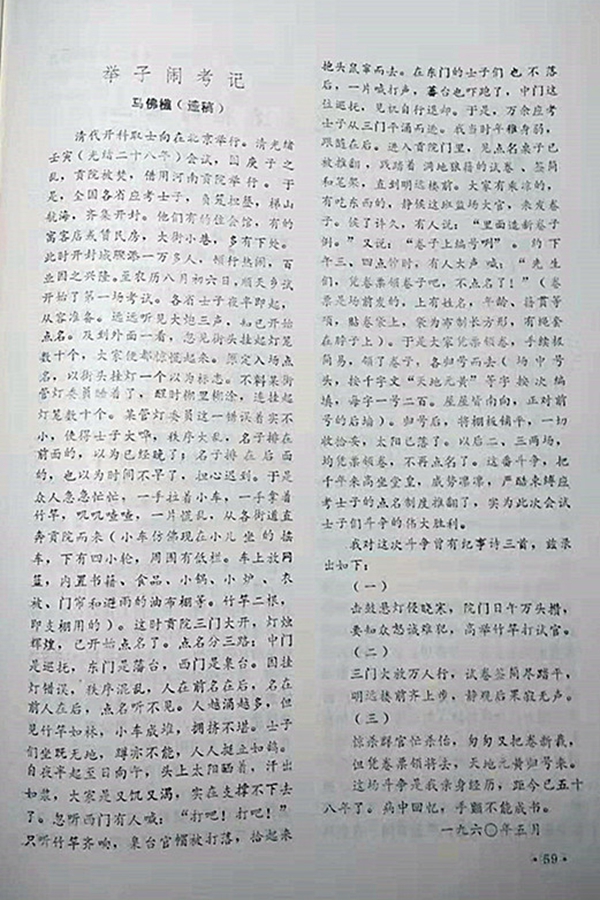 举子闹考记
马佛樵（遗稿）
清代开科取士向在北京举行。清光绪
壬寅（光绪二十八年）会试，因庚子之
乱，贡院被焚，借用河南贡院举行。于
是，全国各省应考士子，负笈担登，梯山
航海，齐集开封。他们有的住会馆，有的
寓客店或赁民房，大街小巷，多有下处。
此时开封城骤添一万多人，倾行热闹，百
业因之兴隆。至农历八月初六日，顺天乡试
开始了第一场考试。各省士子夜半即起，
从容准备。远远听见大炮三声，知已开始
点名。及到外面一看，忽见街头挂起灯笼
数十个，大家便都惊慌起来。原定入场点
名，以街头挂灯一个以为标志。不料某街
管灯委员睡着了，醒时糊里糊涂，连挂起
灯笼数十个。某管灯委员这一错误着实不
小，使得士子大哗，秩序大乱，名子排在
前面的，以为已经晚了；名子排在后面
的，也以为时间不早了，担心迟到。于是
众人急急忙忙，一手拉着小车，一手拿着
竹竿，叽叽喳喳，一片慌乱，从各街道直
奔贡院而来（小车仿佛现在小儿坐的摇
车，下有四小轮，周围有低栏。车上放网
篮，内置书籍、食品、小锅、小炉、衣
被、门帘和避雨的油布棚等。竹竿二根，
即支棚用的）。这时贡院三门大开，灯烛
辉煌，已开始点名了。点名分三路：中门
是巡抚，东门是藩台，西门是臬台。因挂
灯错误，秩序混乱，人在前名在后，名在
前人在后，点名听不见。人越涌越多，但
见竹竿如林，小车成堆，拥挤不堪。士子
们坐既无地，蹲亦不能，人人挺立如鹤。
自夜半起至日向午，头上太阳晒着，汗出
如浆，大家是又饥又渴，实在支撑不下去
了。忽听西门有人喊：“打吧！打吧！”
只听竹竿齐响，臬台官帽被打落，拾起来
抱头鼠窜而去。在东门的士子们也不落
后，一片喊打声，藩台也吓跑了，中门这
位巡抚，见机自行退却。于是，万余应考
士子从三门平涌而进。我当时年稚身弱，
跟随在后。进入贡院门里，见点名桌子已
被推翻，践踏着满地狼籍的试卷、签筒
和笔架，直到明远楼前。大家有乘凉的，
有吃东西的，静候这班监场大官，来发卷
子。候了许久，有人说：“里面造新卷子
倒。”又说：“卷子上编号啊”。约下
午三、四点钟时，有人大声喊：“先生
们，凭卷票领卷子吧，不点名了！”（卷
票是场前发的，上有姓名，年龄、籍贯等
项，贴卷袋上，袋为布制长方形，有绳套
在脖子上）。于是大家凭票领卷，手续极
简易，领了卷子，各归号而去（场中号
头，按千字文“天地元黄”等字按次编
填，每字一号二百。屋屋皆南向，正对前
号的后墙）。归号后，将棚板铺平，一切
收拾妥，太阳已落了。以后二、三两场，
均凭票领卷，不再点名了。这番斗争，把
千年来高坐堂皇，威势凛凛，严酷束缚应
考士子的点名制度推翻了，实为此次会试
士子们斗争的伟大胜利。
我对这次斗争曾有纪事诗三首，兹录
出如下：
（一）
击鼓悬灯侵晓寒，院门日午万头攒，
要知众怒诚难犯，高举竹竿打试官。
（二）
三门大放万人行，试卷签筒尽踏平，
明远楼前齐上步，静观后果寂无声。
（三）
惊杀群官忙杀怡，匆匆又把卷新裁，
但凭卷票领将去，天地元黄归号来。
这场斗争是我亲身经历，距今已五十
八年了。病中回忆，手颤不能成书。
一九六〇年五月
·59·